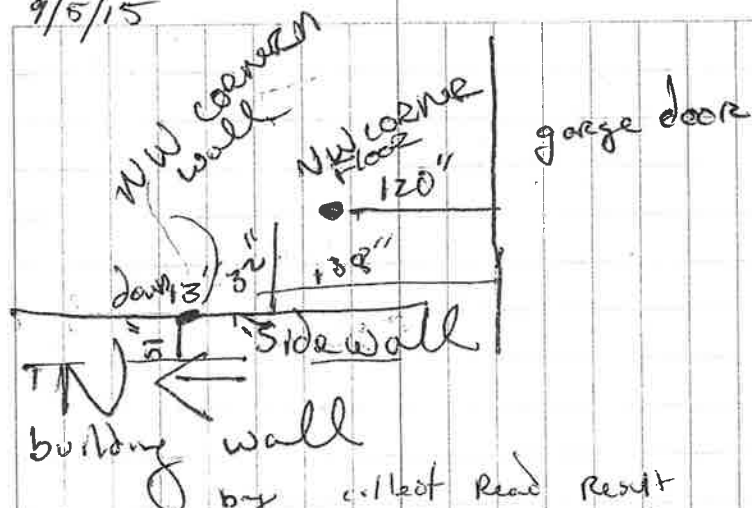 9/5/15
NW CORNER
wall
NW CORNER
FLOOR
garge door
120"
32"
138"
13'
Sidewall
N
building wall
by collect Read Result